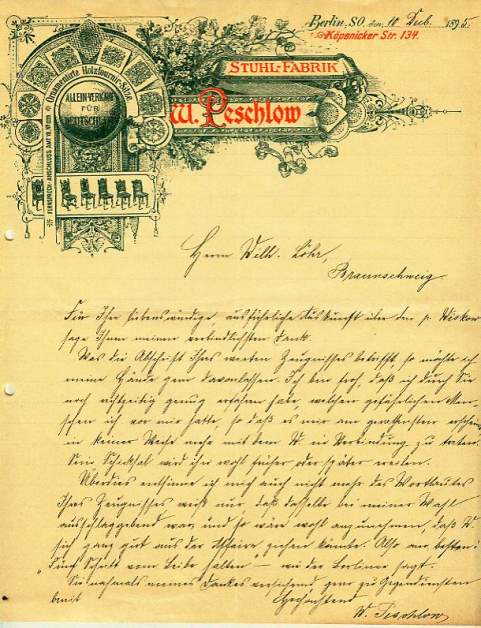 Berlin, SO. den 10 Decb. 1895
Köpenicker Str. 134.
Ornamentirte Holzfournir-Sitze
ALLEIN-VERKAUF
FÜR
DEUTSCHLAND
FERNSPRECH-ANSCHLUSS AMT
STUHL-FABRIK
W. Peschlow
Herrn Wilh. Löhr,
Braunschweig.
Für Ihre liebenswürdige, ausführliche Auskunft über den p. Wiskow
sage Ihnen meinen verbindlichsten Dank.
Was die Abschrift Ihres werten Zeugnisses betrifft, so möchte ich
meine Hände gern davonlassen. Ich bin froh, daß ich durch Sie
noch rechtzeitig genug erfahren habe, welchen gefährlichen Men-
schen ich vor mir hatte, so daß es mir am geratensten erscheint
in keiner Weise mehr mit dem W. in Verbindung zu treten.
Sein Schicksal wird ihn wohl früher oder später ereilen.
Überdies entsinne ich mich auch nicht mehr des Wortlautes
Ihres Zeugnisses weiß nur, daß dasselbe bei meiner Wahl
ausschlaggebend war, und so wäre wohl anzunehmen, daß W.
sich ganz gut aus der Affaire ziehen könnte. Also am besten:
"Drei Schritt vom Leibe halten — wie der Berliner sagt.
Sie nochmals meines Dankes versichernd, gern zu Gegendiensten
bereit
Hochachtend
W. Peschlow